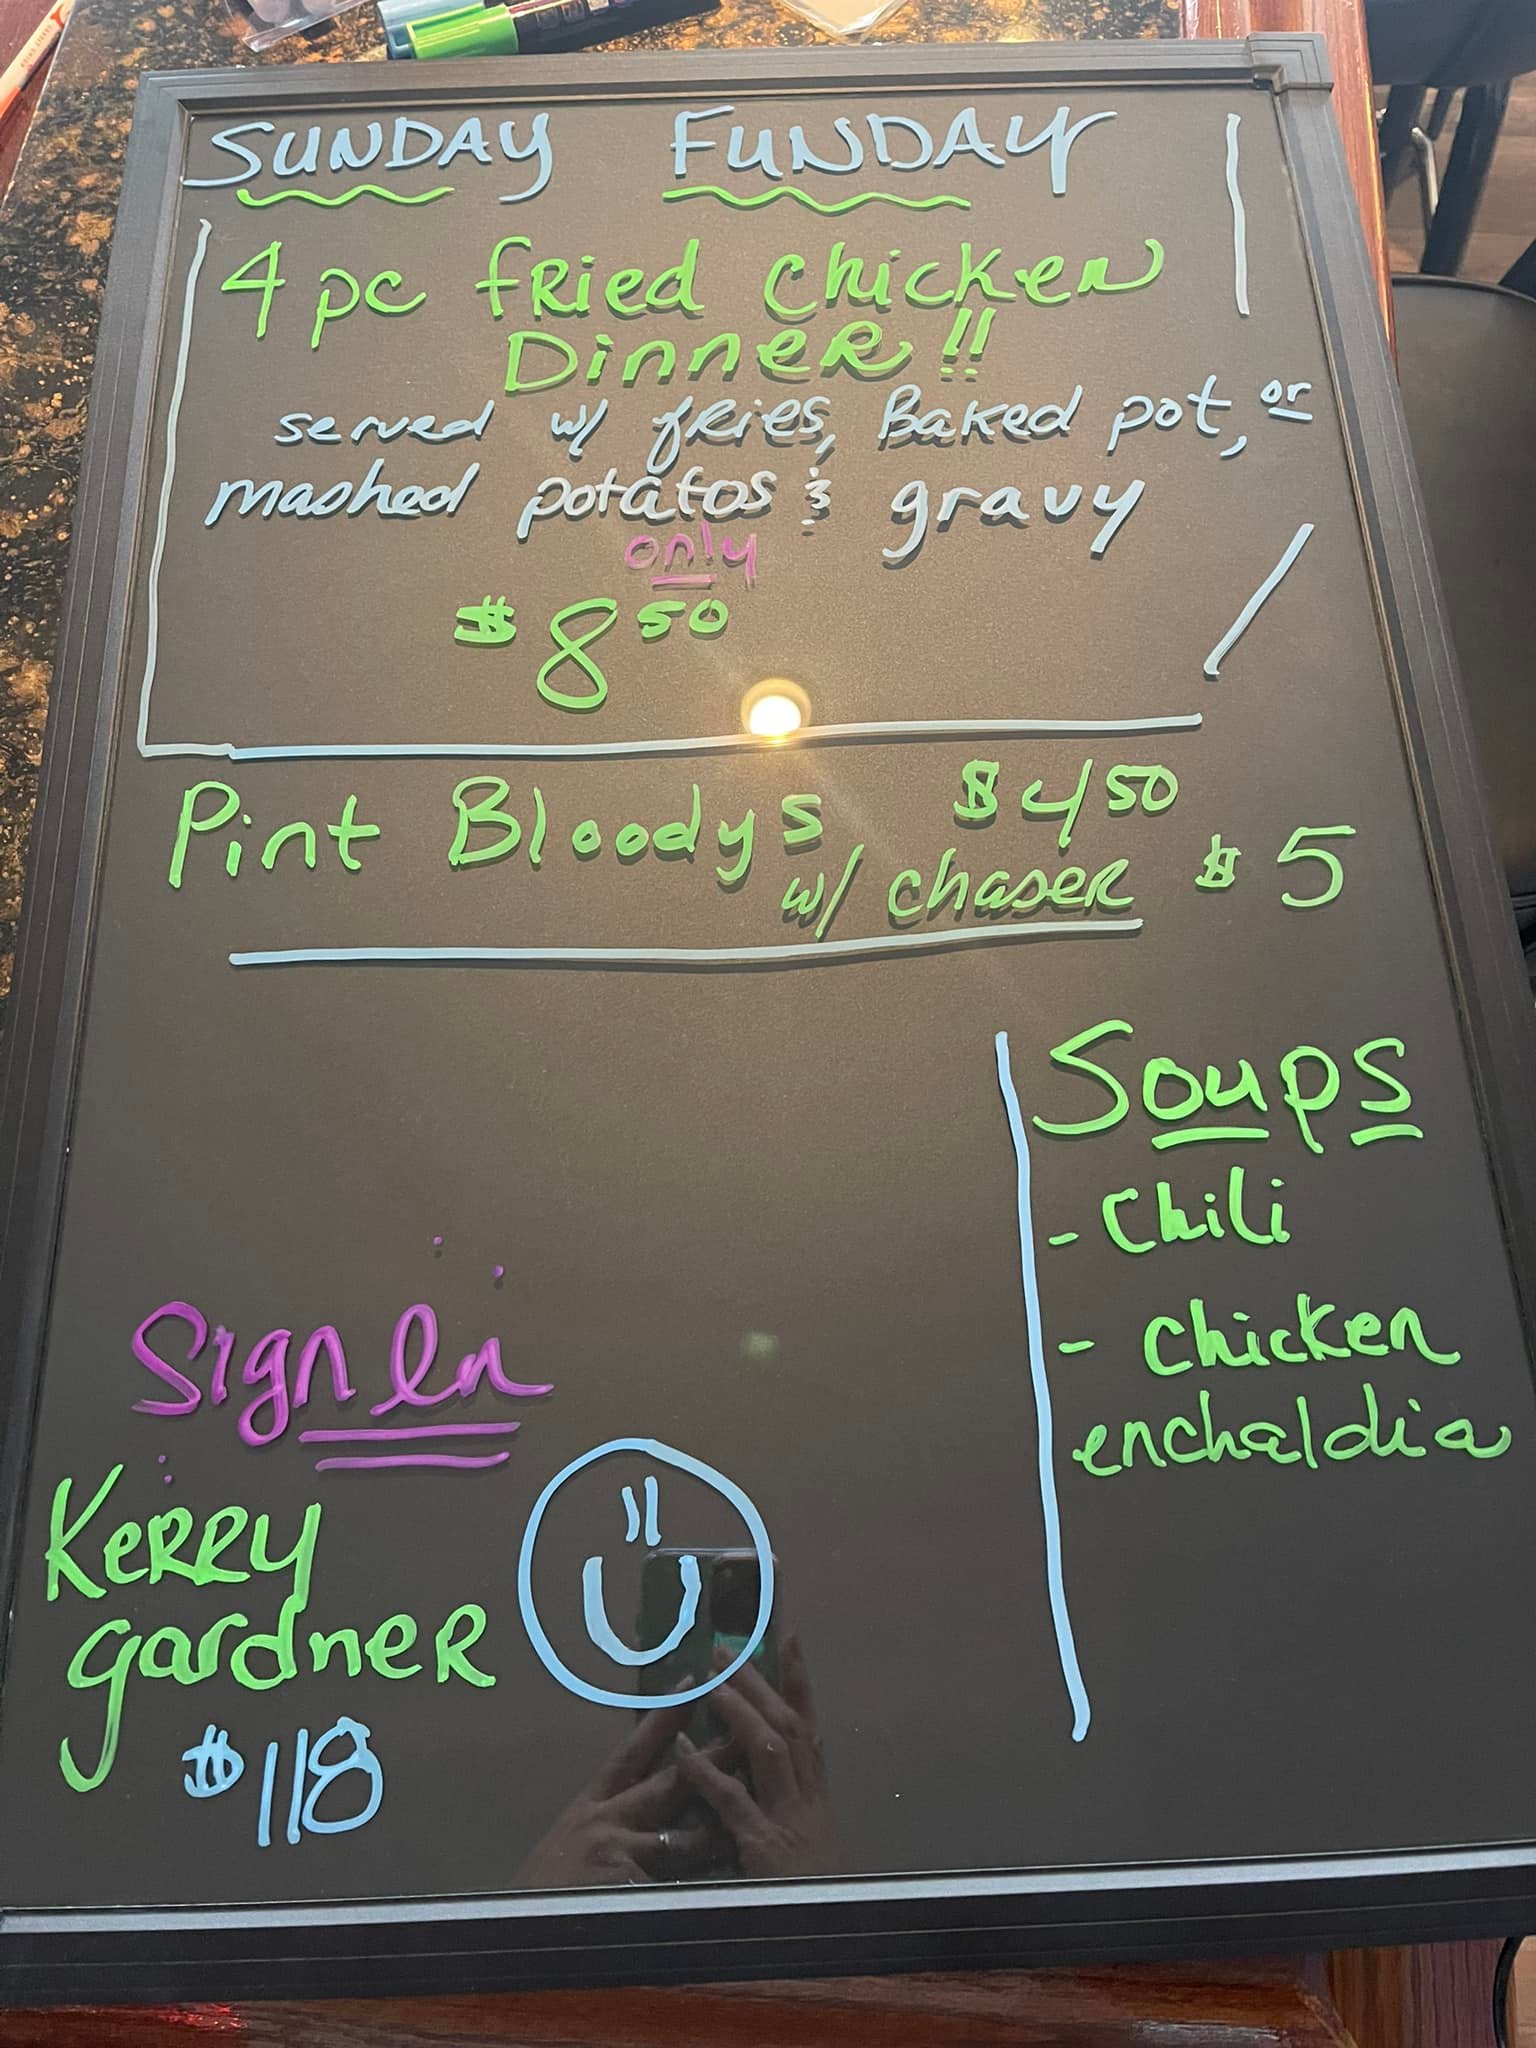 SUNDAY FUNDAY
4 pc fRied chicken
DinneR!!
served w/ fRies, Baked pot, or
mashed potatos & gravy
only
$8 50
Pint Bloodys $4 50
w/ chaseR $5
Soups
- Chili
- chicken
enchaldia
Sign In
KeRRy
gardneR
$118